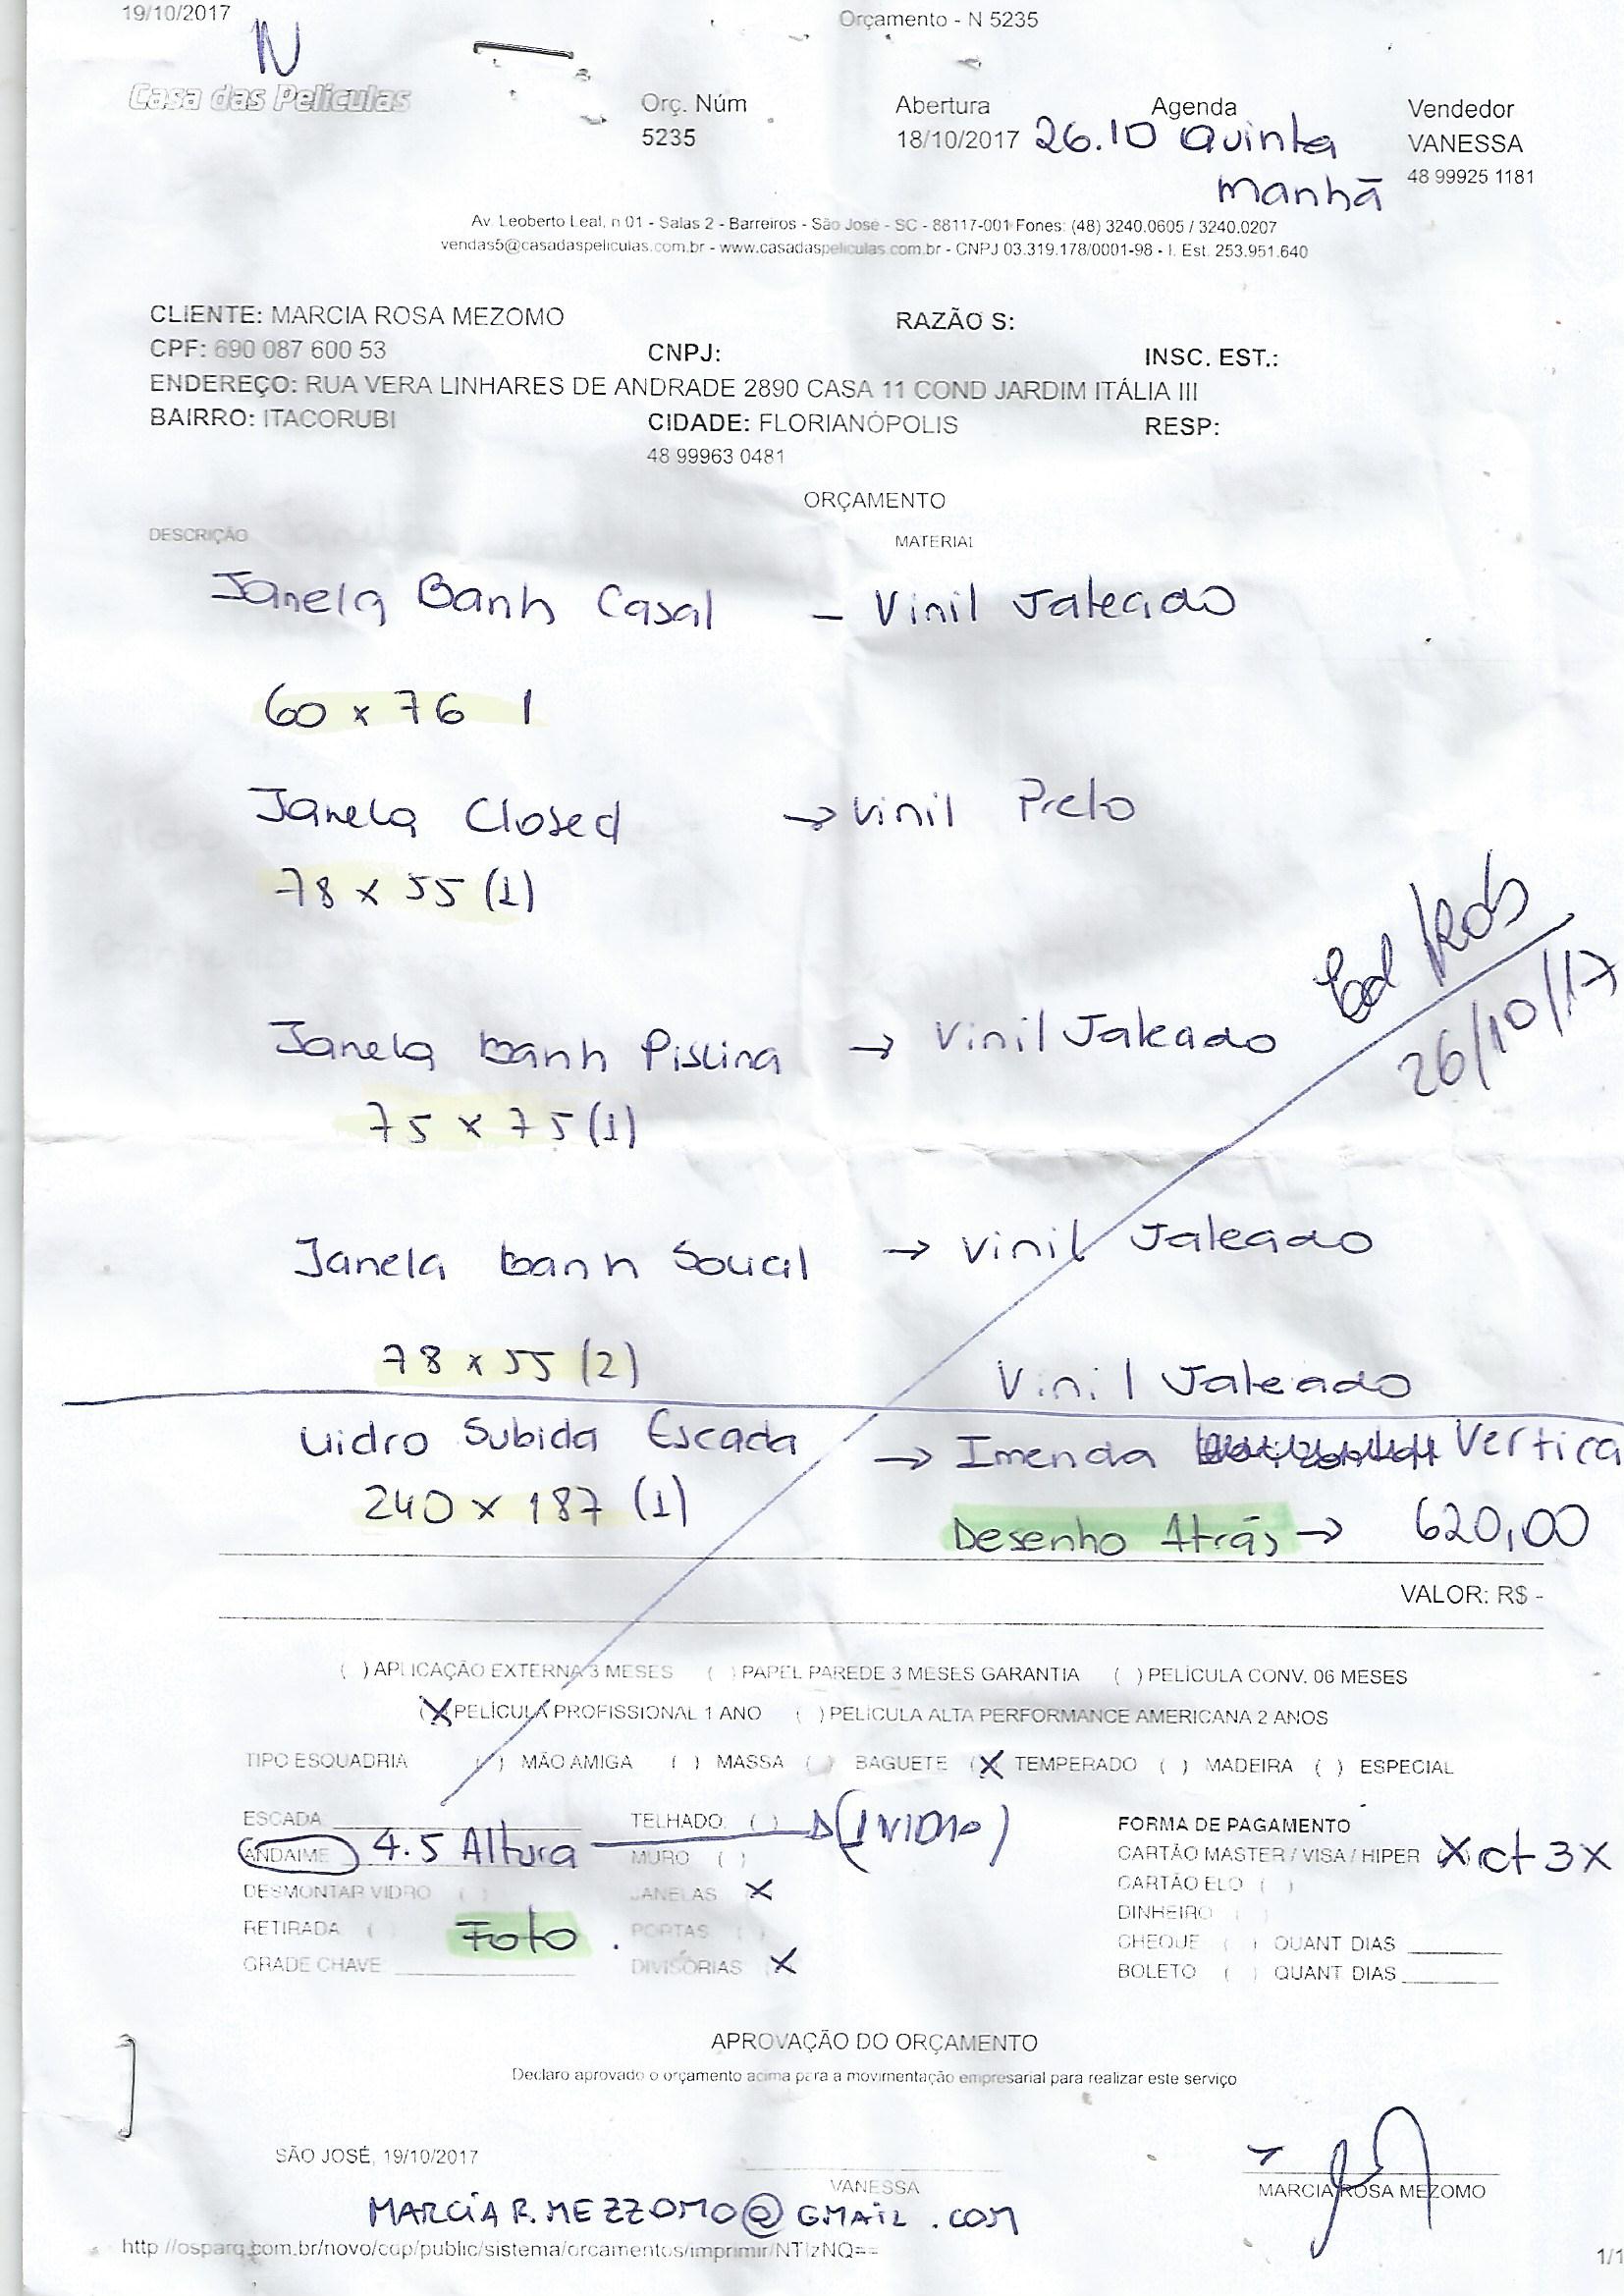 19/10/2017 Orçamento - N 5235
N
Casa das Películas
Orç. Núm Abertura Agenda Vendedor
5235 18/10/2017 26.10 Quinta VANESSA
manhã 48 99925 1181
Av. Leoberto Leal, n 01 - Salas 2 - Barreiros - São José - SC - 88117-001 Fones: (48) 3240.0605 / 3240.0207
vendas5@casadaspeliculas.com.br - www.casadaspeliculas.com.br - CNPJ 03.319.178/0001-98 - I. Est. 253.951.640
CLIENTE: MARCIA ROSA MEZOMO RAZÃO S:
CPF: 690 087 600 53 CNPJ: INSC. EST.:
ENDEREÇO: RUA VERA LINHARES DE ANDRADE 2890 CASA 11 COND JARDIM ITÁLIA III
BAIRRO: ITACORUBI CIDADE: FLORIANÓPOLIS RESP:
48 99963 0481
ORÇAMENTO
DESCRIÇÃO MATERIAL
Janela Banh Casal – Vinil Jateado
60 x 76 1
Janela Closed → Vinil Preto
78 x 55 (1)
Ed / Rob
26/10/17
Janela banh Piscina → Vinil Jateado
75 x 75 (1)
Janela banh Social → Vinil Jateado
78 x 55 (2) Vinil Jateado
Vidro Subida Escada → Imenda Vertica
240 x 187 (1) Desenho Atrás → 620,00
VALOR: R$ -
( ) APLICAÇÃO EXTERNA 3 MESES ( ) PAPEL PAREDE 3 MESES GARANTIA ( ) PELÍCULA CONV. 06 MESES
(X) PELÍCULA PROFISSIONAL 1 ANO ( ) PELÍCULA ALTA PERFORMANCE AMERICANA 2 ANOS
TIPO ESQUADRIA ( ) MÃO AMIGA ( ) MASSA ( ) BAGUETE (X TEMPERADO ( ) MADEIRA ( ) ESPECIAL
ESCADA TELHADO: ( ) (1 VIDRO) FORMA DE PAGAMENTO
ANDAIME 4.5 Altura MURO ( ) CARTÃO MASTER / VISA / HIPER (X) ct 3X
DESMONTAR VIDRO ( ) JANELAS X CARTÃO ELO ( )
DINHEIRO ( )
RETIRADA ( ) Foto. PORTAS ( ) CHEQUE ( ) QUANT DIAS
GRADE CHAVE DIVISÓRIAS X BOLETO ( ) QUANT DIAS
APROVAÇÃO DO ORÇAMENTO
Declaro aprovado o orçamento acima para a movimentação empresarial para realizar este serviço
SÃO JOSÉ, 19/10/2017
VANESSA MARCIA ROSA MEZOMO
MARCIAR.MEZZOMO@GMAIL.COM
http://osparq.com.br/novo/cdp/public/sistema/orcamentos/imprimir/NTIzNQ== 1/1